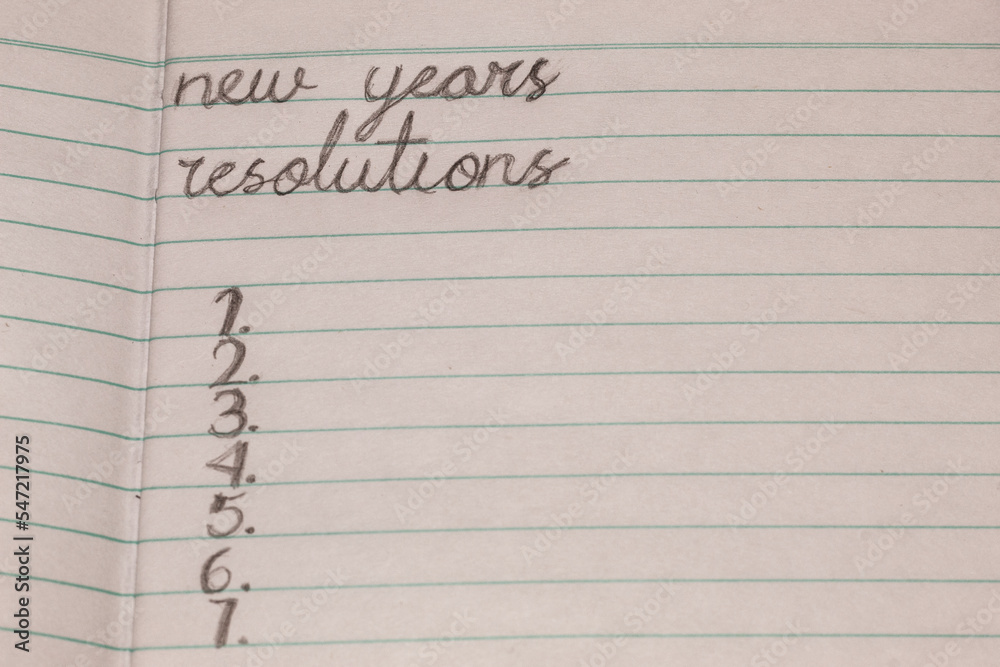 new years
resolutions
1.
2.
3.
4.
5.
6.
7.
Adobe Stock | #547217975